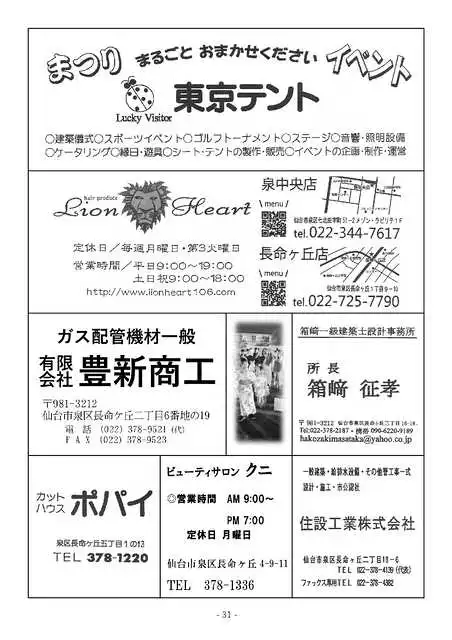 まつり まるごと おまかせください イベント
Lucky Visitor
東京テント
○建築儀式○スポーツイベント○ゴルフトーナメント○ステージ○音響・照明設備
○ケータリング○縁日・遊具○シート・テントの製作・販売○イベントの企画・制作・運営
hair produce
Lion Heart
定休日／毎週月曜日・第3火曜日
営業時間／平日9:00～19:00
土日祝9:00～18:00
http://www.lionheart106.com
泉中央店
\ menu /
tel.022-344-7617
長命ヶ丘店
\ menu /
仙台市泉区長命ヶ丘3丁目9-10
tel.022-725-7790
ガス配管機材一般
有限会社 豊新商工
〒981-3212
仙台市泉区長命ケ丘二丁目6番地の19
電 話 (022) 378-9521 (代)
F A X (022) 378-9523
箱﨑一級建築士設計事務所
所 長
箱﨑 征孝
Tel:022-378-2187・携帯 090-6220-9189
hakozakimasataka@yahoo.co.jp
カットハウス ポパイ
泉区長命ケ丘五丁目1の13
TEL 378-1220
ビューティサロン クニ
◎営業時間 AM 9:00～
PM 7:00
定休日 月曜日
仙台市泉区長命ケ丘 4-9-11
TEL 378-1336
一般建築・給排水設備・その他管工事一式
設計・施工・市公認社
住設工業株式会社
仙台市泉区長命ケ丘二丁目18-6
TEL 022-378-4139 (代表)
ファックス専用TEL 022-378-4382
- 31 -